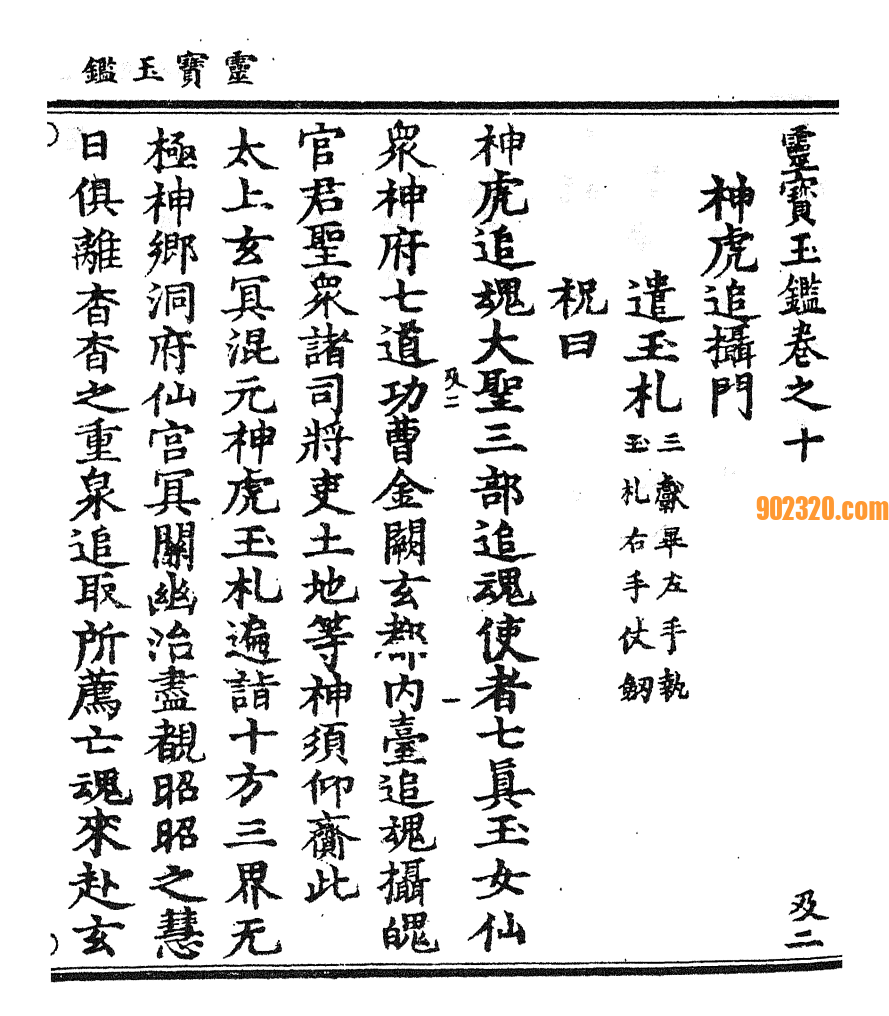 靈寶玉鑑
靈寶玉鑑卷之十
及二
神虎追攝門
遣玉札
三獻畢左手執
玉札右手仗劒
祝曰
神虎追魂大聖三部追魂使者七眞玉女仙
及二
一
衆神府七道功曹金闕玄熈内臺追魂攝魄
官君聖衆諸司將吏土地等神須仰齎此
太上玄冥混元神虎玉札遍詣十方三界无
極神鄉洞府仙宫冥關幽治盡覩昭昭之慧
日俱離杳杳之重泉追取所薦亡魂來赴玄
902320.com